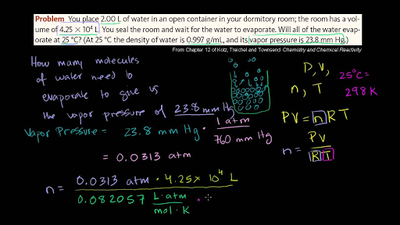 Problem You place 2.00 L of water in an open container in your dormitory room; the room has a vol-
ume of 4.25 × 10⁴ L. You seal the room and wait for the water to evaporate. Will all of the water evap-
orate at 25 °C? (At 25 °C the density of water is 0.997 g/mL, and its vapor pressure is 23.8 mm Hg.)
From Chapter 12 of Kotz, Treichel and Townsend Chemistry and Chemical Reactivity
How many molecules
of water need to
evaporate to give us
the vapor pressure of 23.8 mm Hg
P, V,
n, T
25°C =
298 K
PV = nRT
n = PV
RT
Vapor Pressure = 23.8 mm Hg · 1 atm
760 mm Hg
= 0.0313 atm
n = 0.0313 atm · 4.25 × 10⁴ L
0.082057 L·atm
mol·K ·